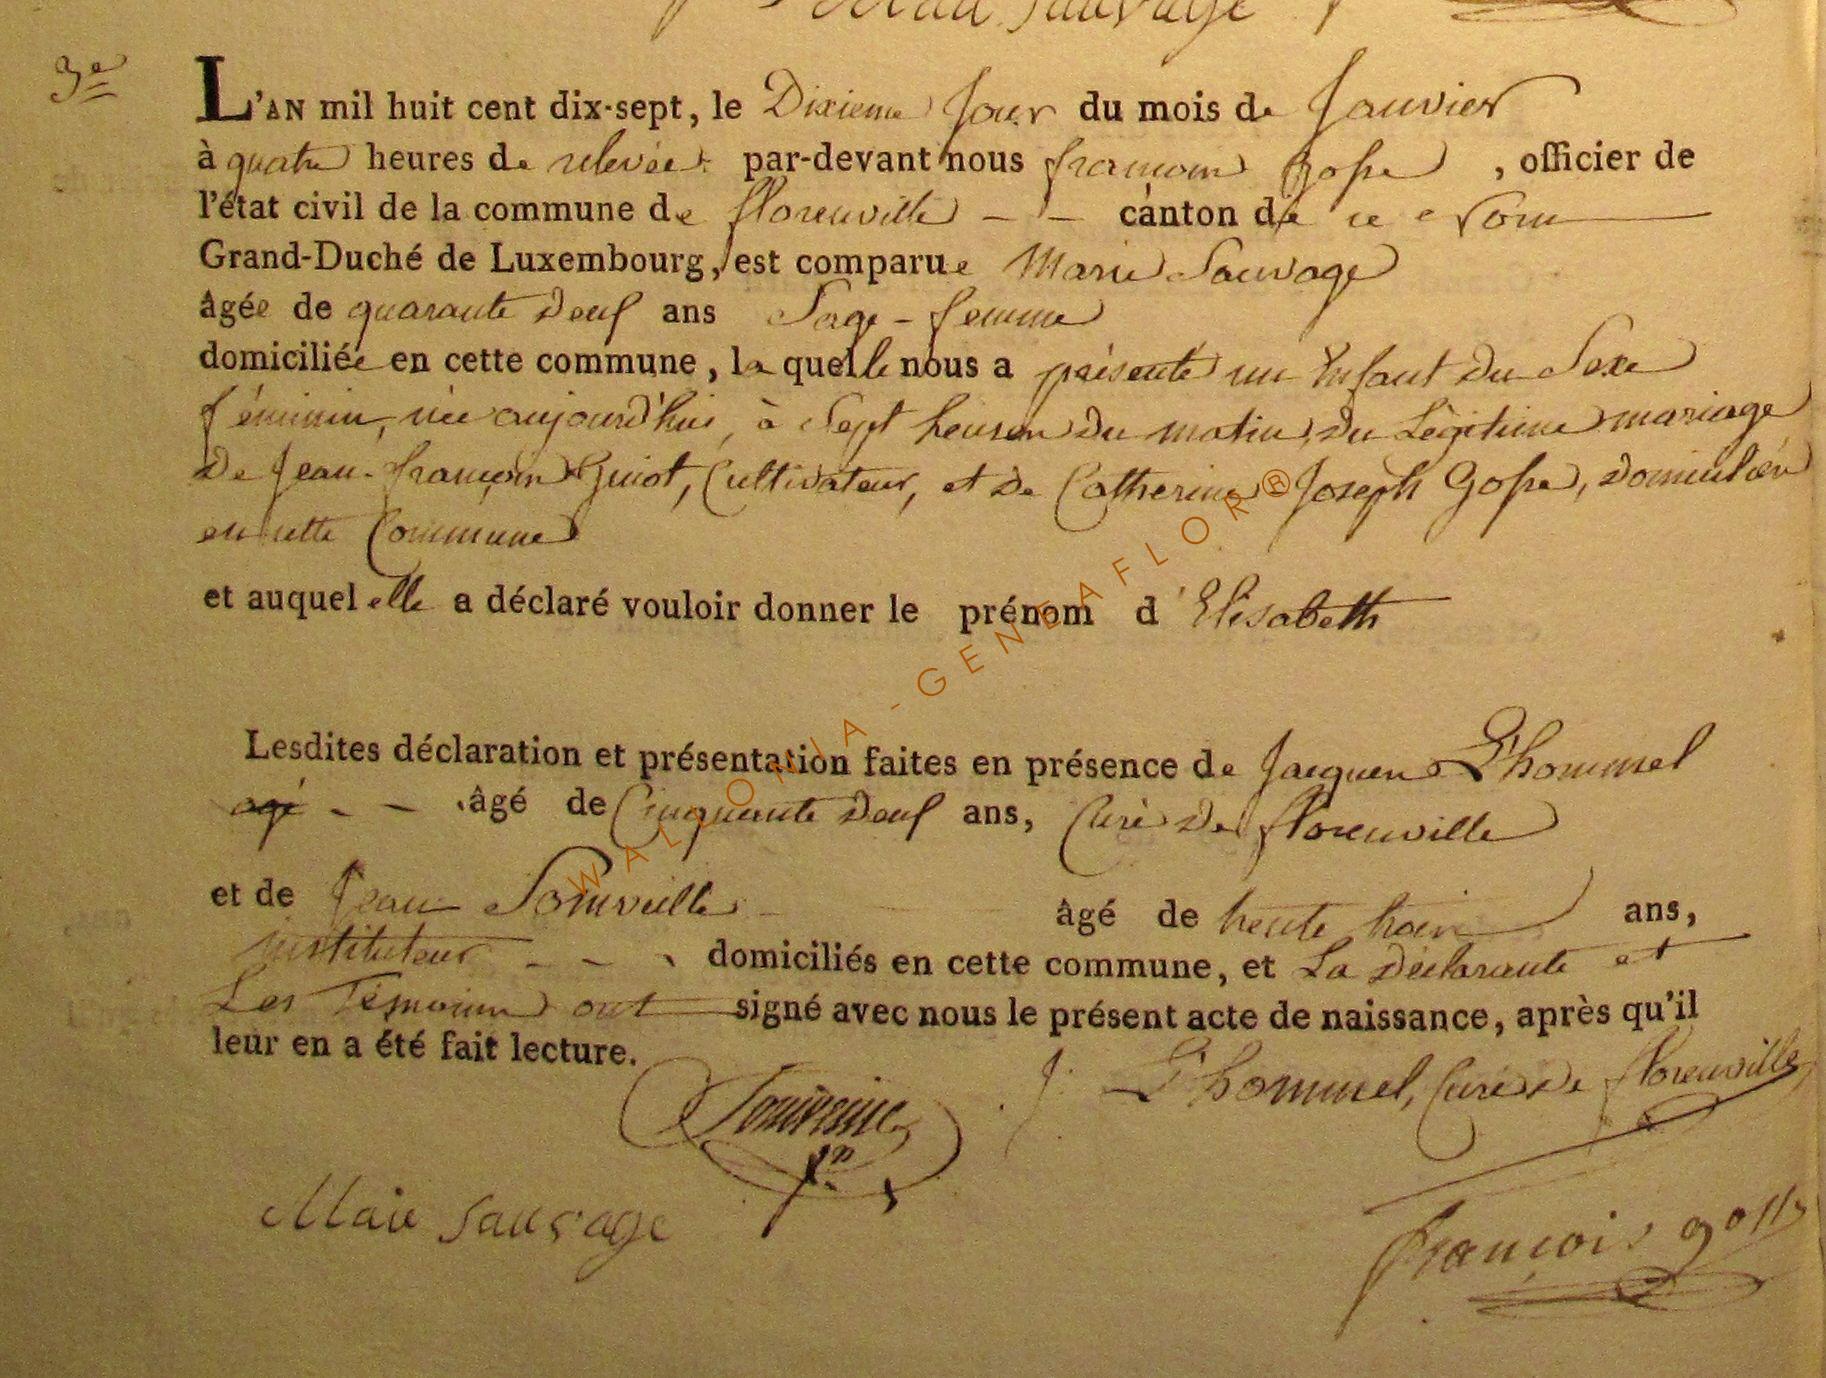 Marie Sauvage
3e
L'AN mil huit cent dix-sept, le Dixieme Jour du mois de Janvier
à quatre heures de relevée par-devant nous françois Gosse , officier de
l'état civil de la commune de florenville - - canton de ce nom
Grand-Duché de Luxembourg, est comparue Marie Sauvage
âgée de quarante Neuf ans Sage-femme
domiciliée en cette commune, la quelle nous a présenté un Enfant Du Sexe
féminin, née aujourd'hui, à Sept heures Du matin, Du Légitime mariage
De Jean-françois Guiot, Cultivateur, et De Catherine Joseph Gosse, Domiciliés
en cette Commune
et auquel elle a déclaré vouloir donner le prénom d'Elisabeth
Lesdites déclaration et présentation faites en présence de Jacques L'hommel
agé - - âgé de Cinquante Neuf ans, Curé De florenville
et de Jean âgé de trente trois ans,
instituteur - - - domiciliés en cette commune, et La Déclarante et
Les Témoins ont signé avec nous le présent acte de naissance, après qu'il
leur en a été fait lecture.
J. L'hommel, Curé De florenville
Marie Sauvage
François gosse
WALLONIA-GENEAFLOR®